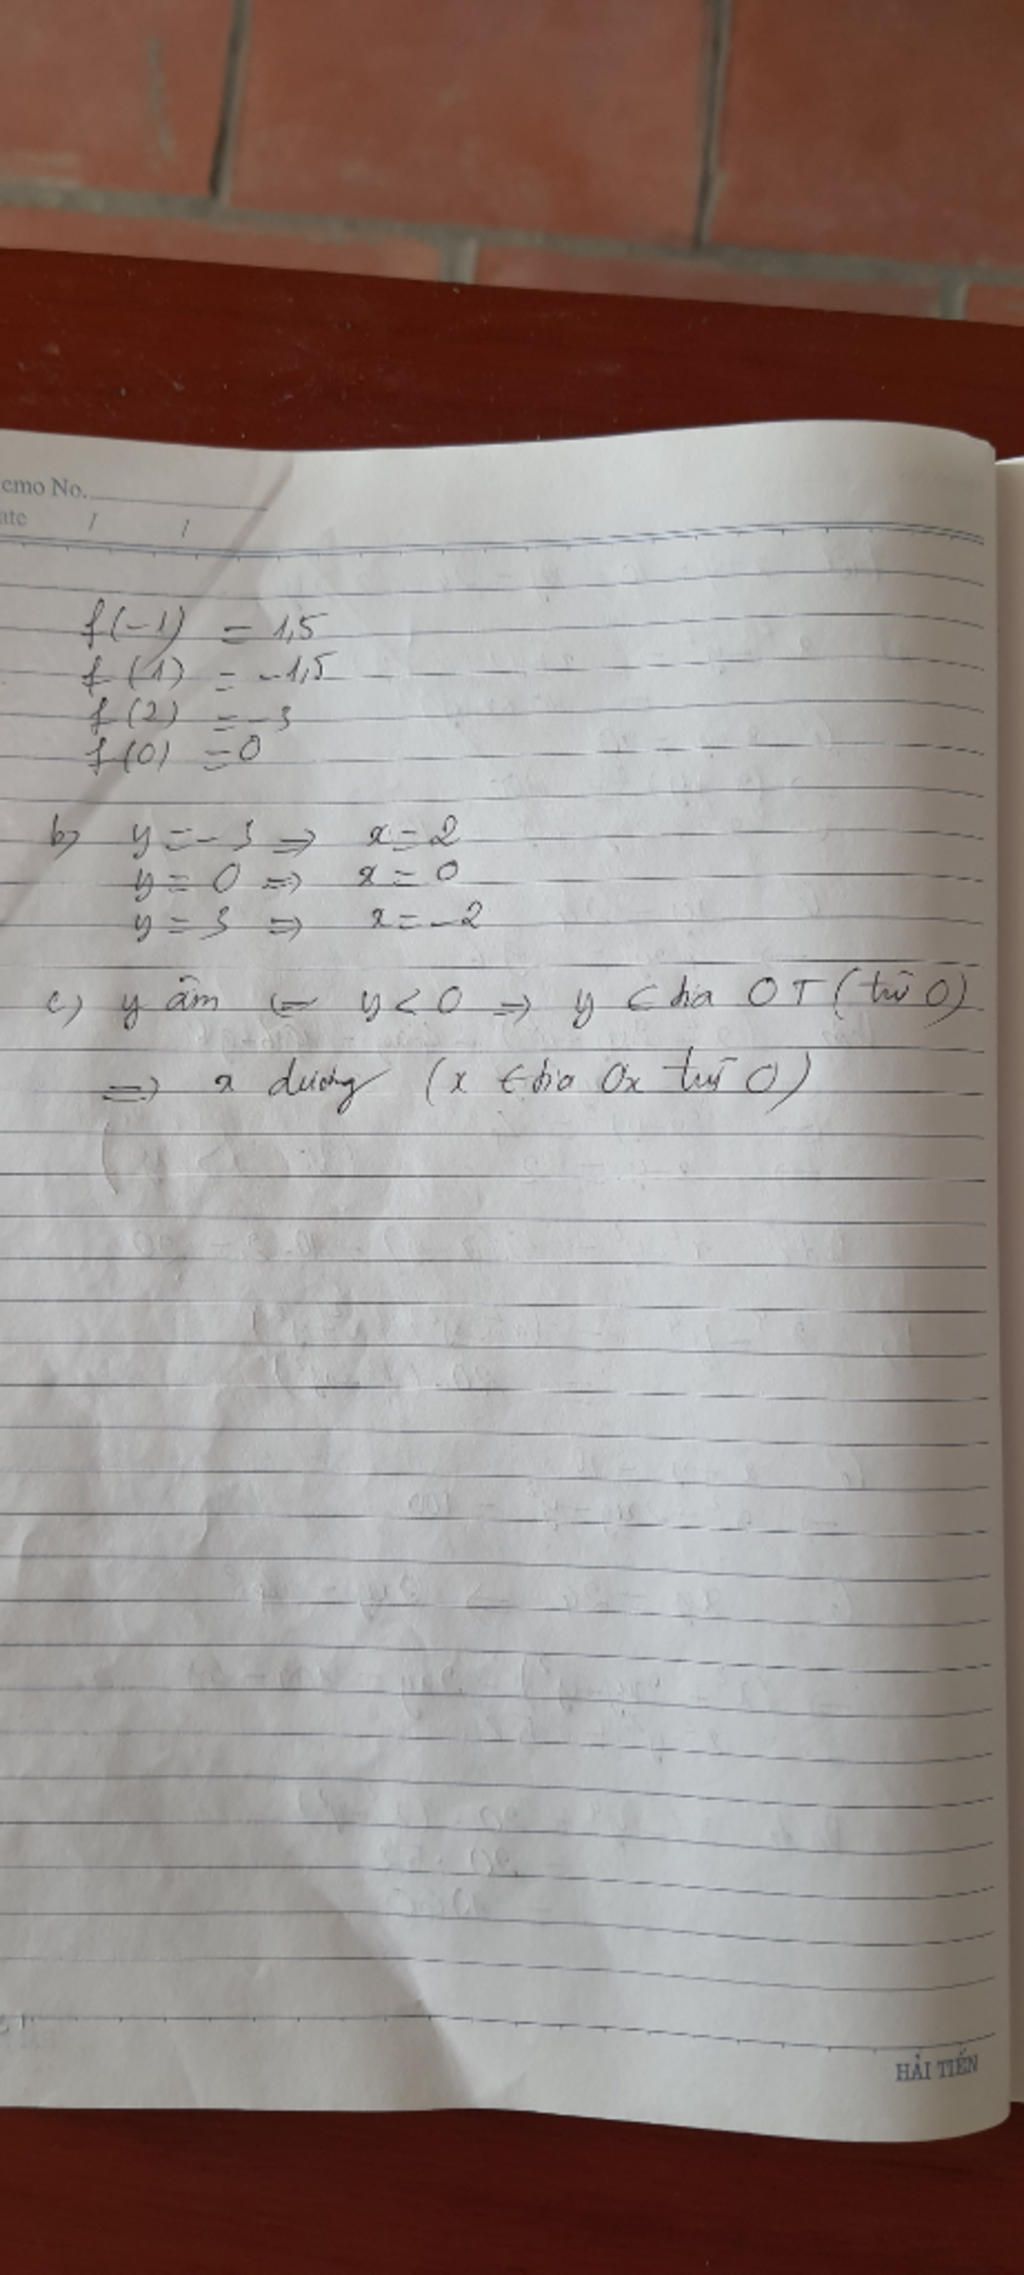 emo No.
ate / /
f(-1) = 1,5
f(1) = -1,5
f(2) = -3
f(0) = 0
b) y = -3 => x = 2
y = 0 => x = 0
y = 3 => x = -2
c) y âm <= y < 0 => y ∈ tia OT (trừ O)
=> x dương (x ∈ tia Ox trừ O)
HẢI TIẾN